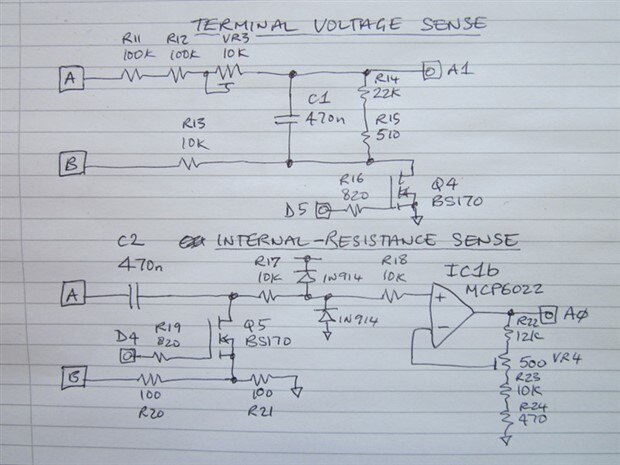 TERMINAL VOLTAGE SENSE
R11 R12 VR3
100K 100K 10K
A
A1
R14
22K
C1
470n
R15
510
R13
10K
B
R16
820
Q4
BS170
D5
C2 INTERNAL-RESISTANCE SENSE
470n
R17
10K
1N914
R18
10K
IC1b
MCP6022
A
+
-
1N914
A0
R22
12K
R19
820
D4
Q5
BS170
500 VR4
R23
10K
B
100
R20
100
R21
R24
470